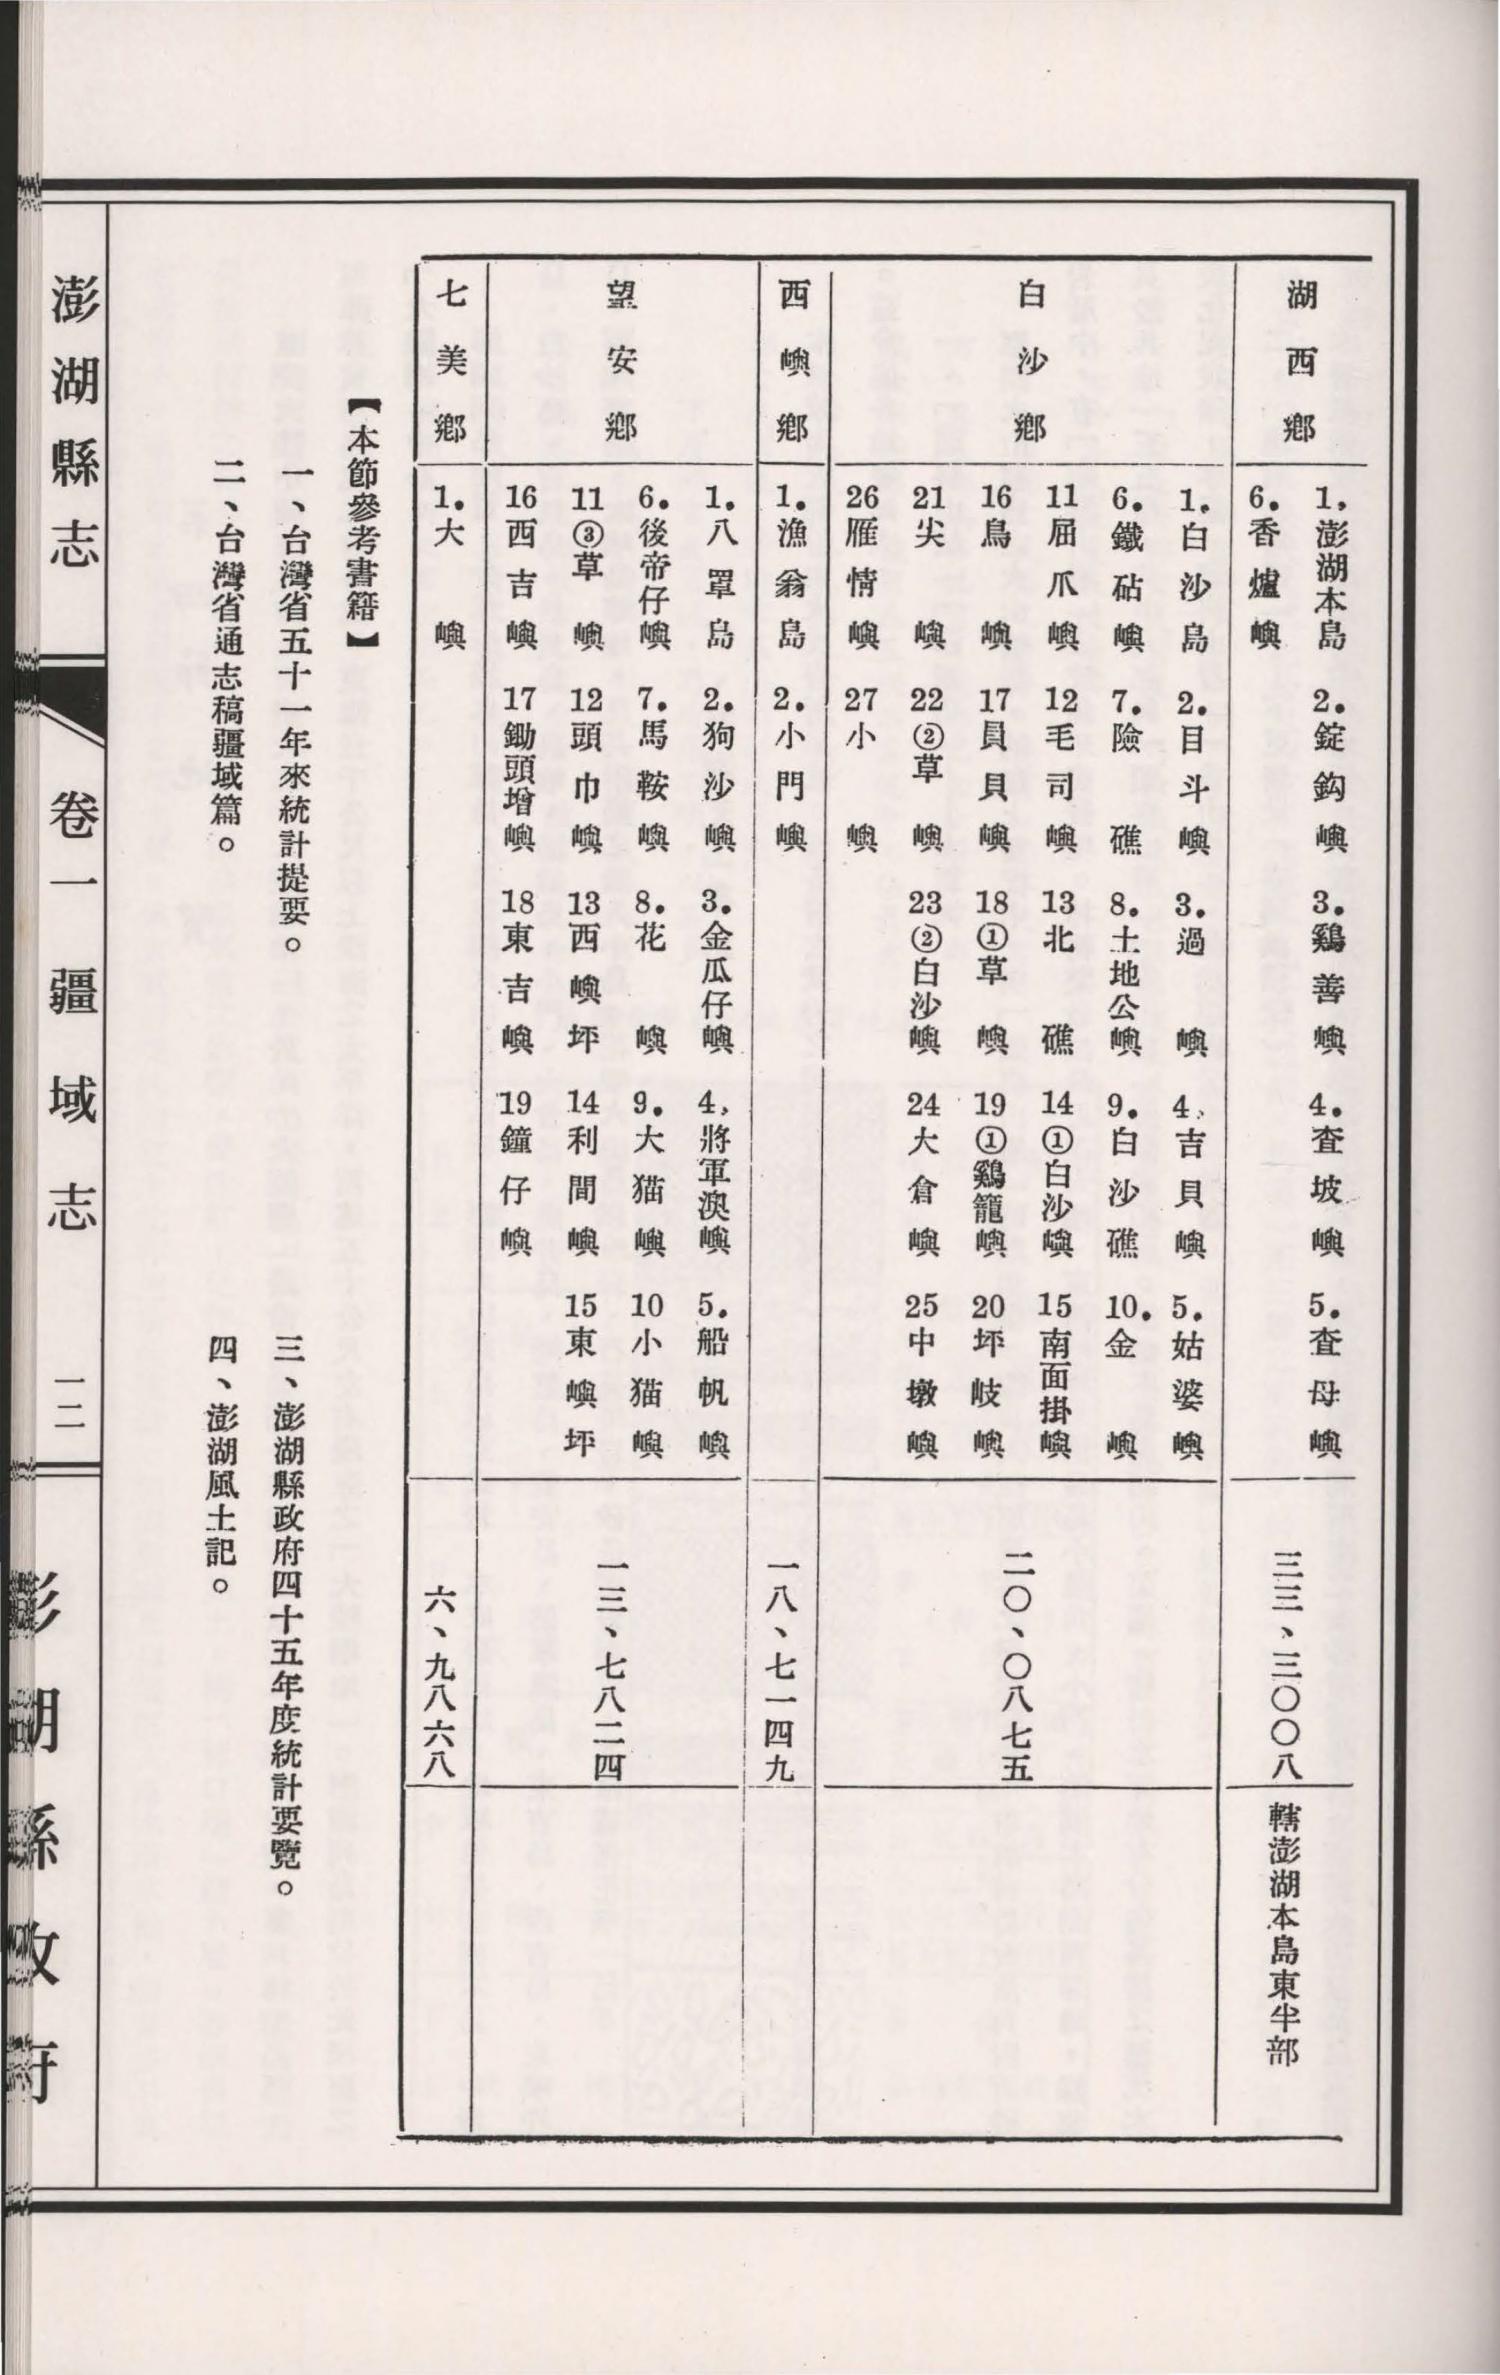 湖西鄉
1.澎湖本島 2.錠鈎嶼 3.鷄善嶼 4.查坡嶼 5.查母嶼
6.香爐嶼
三三、三〇〇八
轄澎湖本島東半部
白沙鄉
1.白沙島 2.目斗嶼 3.過嶼 4.吉貝嶼 5.姑婆嶼
6.鐵砧嶼 7.險礁 8.土地公嶼 9.白沙礁 10.金嶼
11屈爪嶼 12毛司嶼 13北礁 14①白沙嶼 15南面掛嶼
16鳥嶼 17員貝嶼 18①草嶼 19①鷄籠嶼 20坪岐嶼
21尖嶼 22②草嶼 23②白沙嶼 24大倉嶼 25中墩嶼
26雁情嶼 27小嶼
二〇、〇八七五
西嶼鄉
1.漁翁島 2.小門嶼
一八、七一四九
望安鄉
1.八罩島 2.狗沙嶼 3.金瓜仔嶼 4,將軍澳嶼 5.船帆嶼
6.後帝仔嶼 7.馬鞍嶼 8.花嶼 9.大猫嶼 10小猫嶼
11③草嶼 12頭巾嶼 13西嶼坪 14利間嶼 15東嶼坪
16西吉嶼 17鋤頭增嶼 18東吉嶼 19鐘仔嶼
一三、七八二四
七美鄉
1.大嶼
六、九八六八
【本節參考書籍】
一、台灣省五十一年來統計提要。 三、澎湖縣政府四十五年度統計要覽。
二、台灣省通志稿疆域篇。 四、澎湖風土記。
澎湖縣志 卷一疆域志 一二 澎湖縣政府